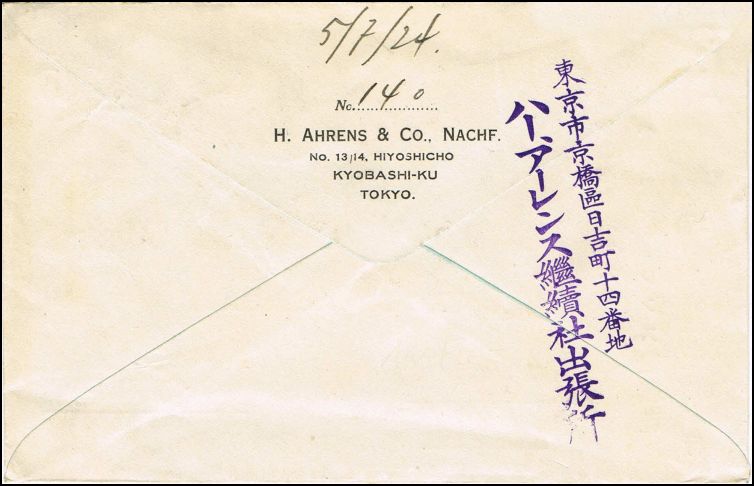 5/7/24.
No. 140
H. AHRENS & CO., NACHF.
No. 13/14, HIYOSHICHO
KYOBASHI-KU
TOKYO.
東京市京橋區日吉町十四番地
ハー、アーレンス繼續社出張所